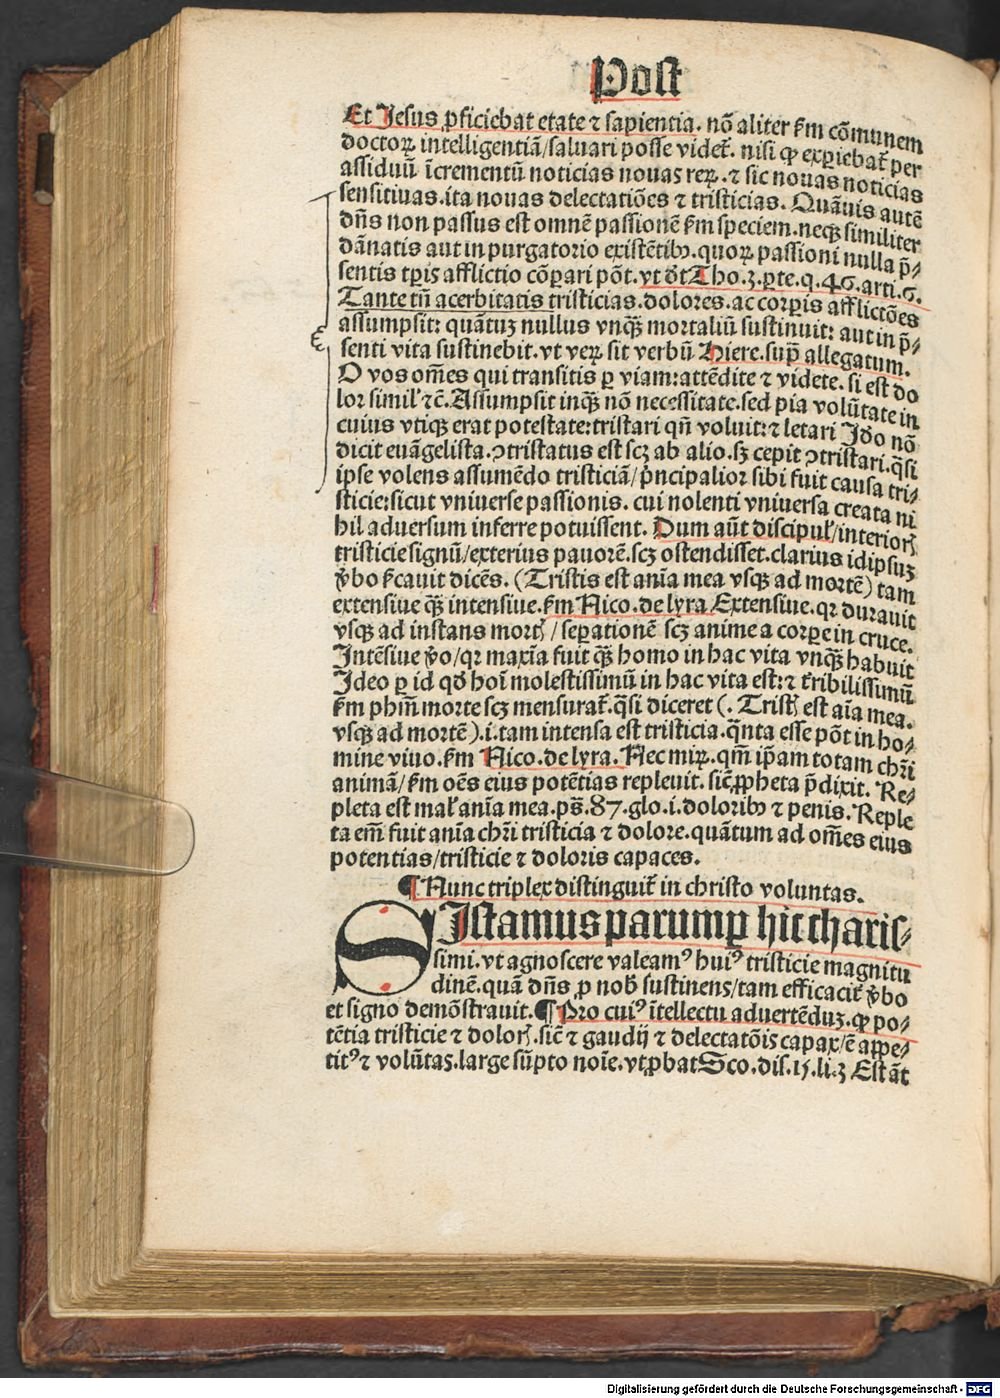 Post
Et Jesus ꝓficiebat etate ⁊ sapientia. nõ aliter ẜm cõmunem
doctoꝝ intelligentiã/saluari posse videt᷑. nisi ꝙ expiebat᷑ per
assiduũ ĩcrementũ noticias nouas reꝝ. ⁊ sic nouas noticias
sensitiuas. ita nouas delectatiões ⁊ tristicias. Quãuis autẽ
dñs non passus est omnẽ passionẽ ẜm speciem. neqꝫ similiter
dãnatis aut in purgatorio existẽtibꝰ. quoꝝ passioni nulla p̃⸗
sentis tꝑis afflictio cõpari põt. vt dt Tho. 3. ꝑte. q. 46. arti. 6.
Tante tñ acerbitatis tristicias. dolores. ac corꝑis afflictões
assumpsit: quãtuꝫ nullus vnqꝫ̃ mortaliũ sustinuit: aut in p̃⸗
senti vita sustinebit. vt veꝝ sit verbũ Hiere. supͣ allegatum.
O vos om̃es qui transitis ꝑ viam: attẽdite ⁊ videte. si est do
lor simil᷒ ⁊c̃. Assumpsit inqꝫ̃ nõ necessitate. sed pia volũtate in
cuius vtiqꝫ erat potestate: tristari qñ voluit: ⁊ letari Jdo nõ
dicit euãgelista. ꝯtristatus est scꝫ ab alio. sꝫ cepit ꝯtristari. q̃si
ipse volens assumẽdo tristiciã/pͥncipalior sibi fuit causa tri⸗
sticie: sicut vniuerse passionis. cui nolenti vniuersa creata ni
hil aduersum inferre potuissent. Dum aũt discipul᷒/interioris
tristicie signũ/exterius pauorẽ. scꝫ ostendisset. clarius idipsuꝫ
v̾bo ẜcauit dicẽs. (Tristis est anĩa mea vsqꝫ ad mortẽ) tam
extensiue qꝫ̃ intensiue. ẜm Nico. de lyra Extensiue. qꝛ durauit
vsqꝫ ad instans mortꝭ / seꝑationẽ scꝫ anime a corꝑe in cruce.
Jntẽsiue v̾o/qꝛ maxĩa fuit qꝫ̃ homo in hac vita vnqꝫ̃ habuit
Jdeo ꝑ id qd̾ hoĩ molestissimũ in hac vita est: ⁊ t᷑ribilissimũ
ẜm phm̃ morte scꝫ mensurat᷑. q̃si diceret (. Tristꝭ est aĩa mea.
vsqꝫ ad mortẽ). i. tam intensa est tristicia. qͣnta esse põt in ho⸗
mine viuo. ẜm Nico. de lyra. Nec miꝝ. qm̃ ip̃am totam chr̃i
animã/ẜm oẽs eius potẽtias repleuit. sic̃ ꝓpheta p̃dixit. Re⸗
pleta est mal᷒ anĩa mea. ps̃. 87. glo. i. doloribꝰ ⁊ penis. Reple
ta em̃ fuit anĩa chr̃i tristicia ⁊ dolore. quãtum ad om̃es eius
potentias/tristicie ⁊ doloris capaces.
¶ Nunc triplex distinguit᷑ in christo voluntas.
SJstamus parumꝑ hic charis⸗
simi. vt agnoscere valeamꝰ huiꝰ tristicie magnitu
dinẽ. quã dñs ꝓ nobꝭ sustinens/tam efficacit᷑ v̾bo
et signo demõstrauit. ¶ Pro cuiꝰ ĩtellectu aduertẽduꝫ. ꝙ po⸗
tẽtia tristicie ⁊ dolorꝭ. sic̃ ⁊ gaudij ⁊ delectatõis capax/ẽ appe⸗
titꝰ ⁊ volũtas. large sũpto noĩe. vt ꝓbat Sco. dis. 15. li. 3 Est ãt
Digitalisierung gefördert durch die Deutsche Forschungsgemeinschaft - DFG